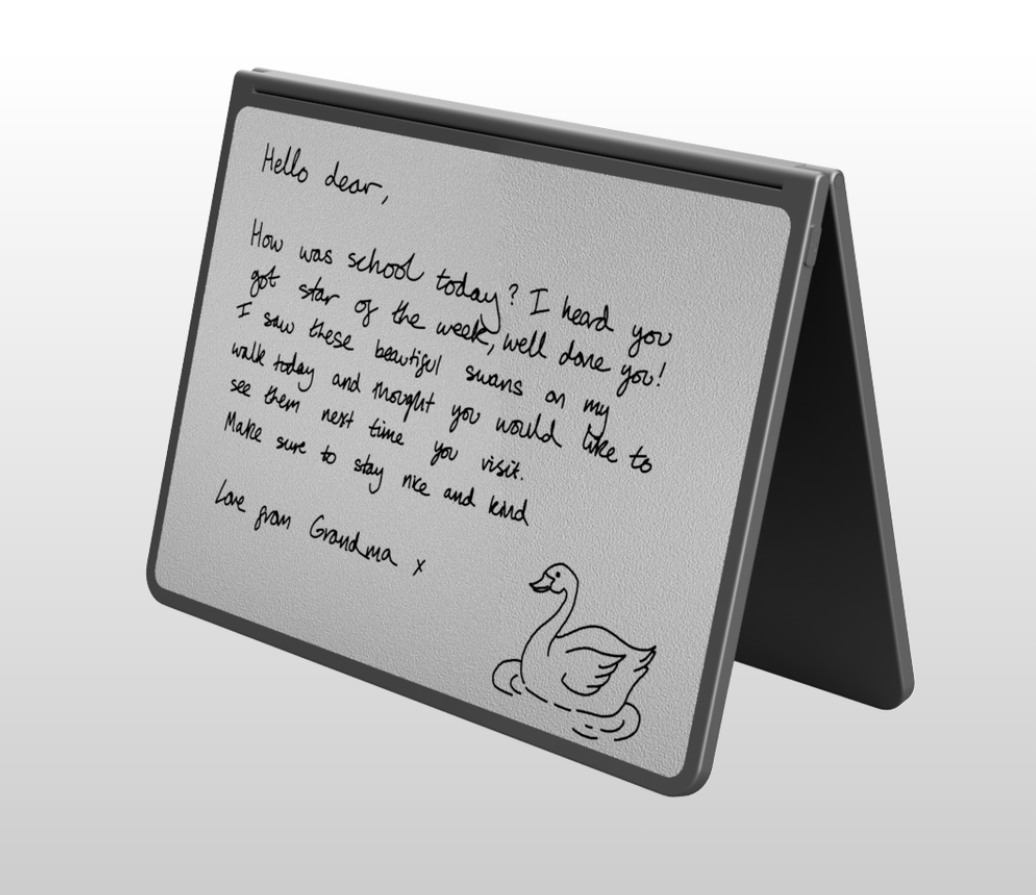 Hello dear,
How was school today? I heard you
got star of the week, well done you!
I saw these beautiful swans on my
walk today and thought you would like to
see them next time you visit.
Make sure to stay nice and kind
Love from Grandma x